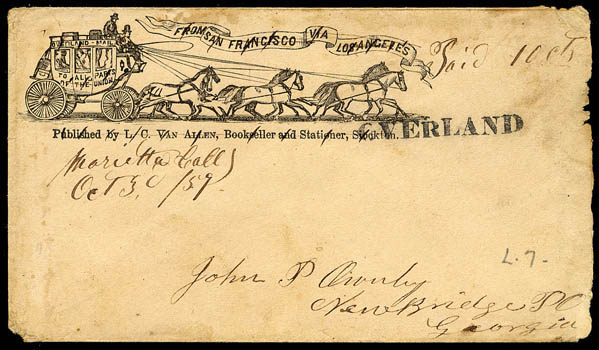 FROM SAN FRANCISCO VIA LOS ANGELES
OVERLAND-MAIL
TO ALL PARTS
OF THE UNION
Paid 10 cts
Published by L. C. VAN ALLEN, Bookseller and Stationer, Stockton.
OVERLAND
Marietta Call
Oct 3d /59.
L.7.
John P
New Bridge P.O
Georgia